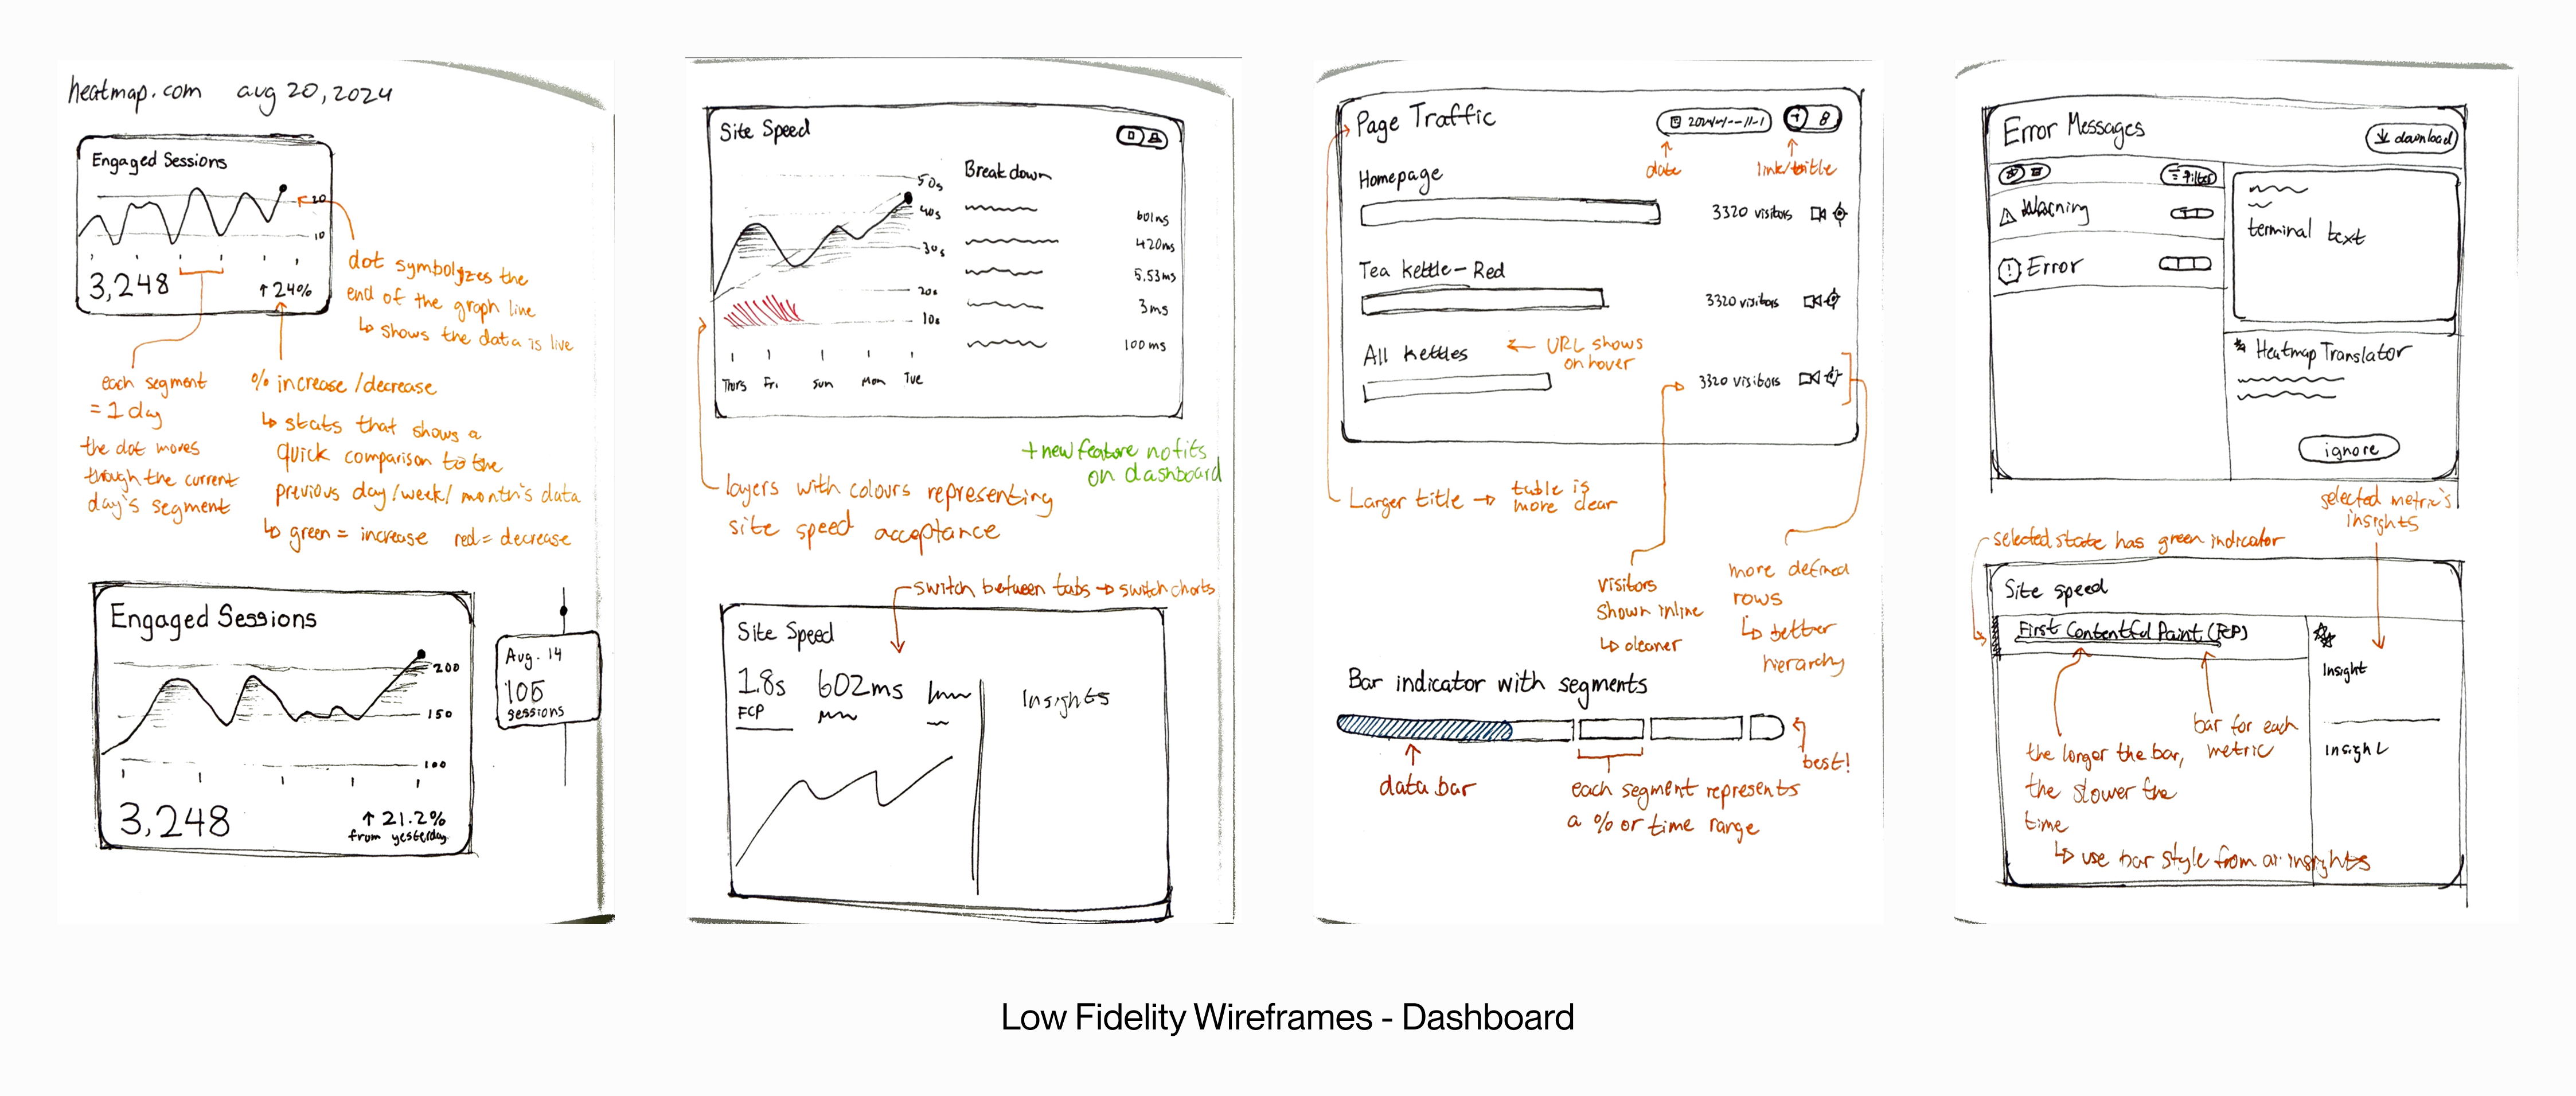 heatmap.com aug 20, 2024
Engaged Sessions
20
10
3,248
↑ 24%
dot symbolyzes the
end of the graph line
↳ shows the data is live
each segment
= 1 day
the dot moves
though the current
day's segment
% increase / decrease
↳ stats that shows a
quick comparison to the
previous day/week/ month's data
↳ green = increase red = decrease
Engaged Sessions
200
150
100
3,248
↑ 21.2%
from yesterday
Avg. 14
105
sessions
Site Speed
50s
40s
30s
20s
10s
Thurs Fri Sun Mon Tue
Breakdown
601ms
420ms
5.53ms
3ms
100ms
+ new feature notifs
on dashboard
layers with colours representing
site speed acceptance
switch between tabs → switch charts
Site Speed
1.8s
FCP
602ms
Insights
Page Traffic
date
link/title
Homepage
3320 visitors
Tea kettle - Red
3320 visitors
All kettles
← URL shows
on hover
3320 visitors
Larger title → table is
more clear
visitors
shown inline
↳ cleaner
more defined
rows
↳ better
hierarchy
Bar indicator with segments
best!
data bar
each segment represents
a % or time range
Error Messages
download
Filter
Warning
Error
terminal text
Heatmap Translator
ignore
selected metric's
insights
selected state has green indicator
Site speed
First Contentful Paint (FCP)
Insight
Insight
bar for each
metric
the longer the bar,
the slower the
time
↳ use bar style from ai insights
Low Fidelity Wireframes - Dashboard